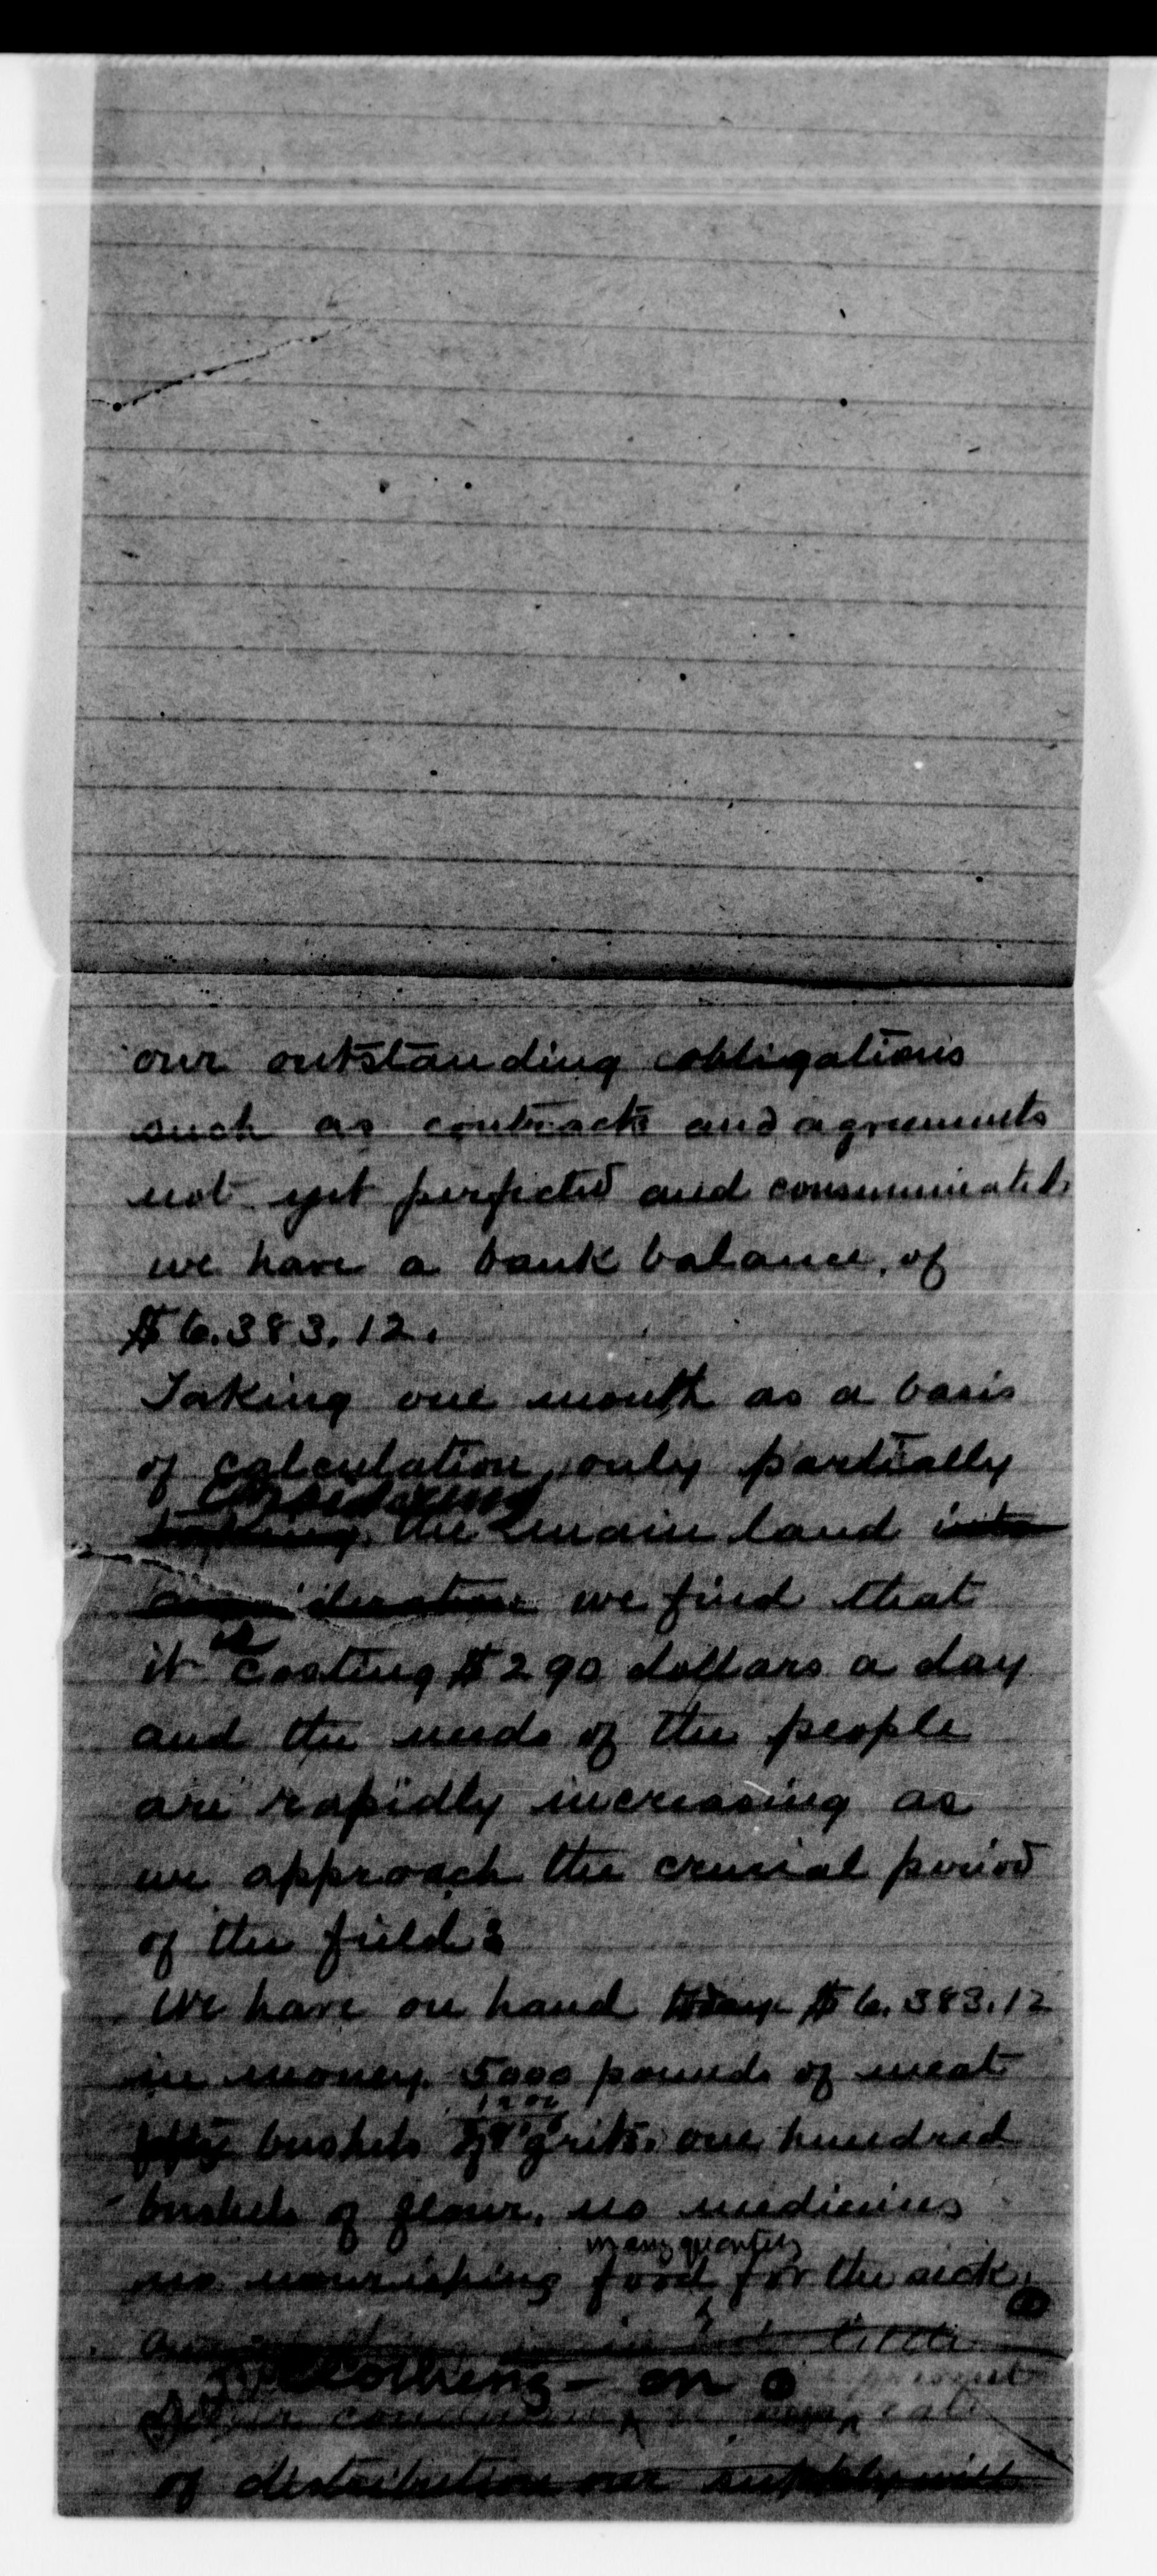 our outstanding obligations
such as contracts and agreements
not yet perfected and consummated,
we have a bank balance, of
$6.383.12.
Taking one month as a basis
of calculation, only partially
Considering
taking the main land into
consideration we find that
is
it costing $290 dollars a day
and the needs of the people
are rapidly increasing as
we approach the crucial period
of the field.
We have on hand today $6.383.12
in money. 5000 pounds of meat
1200
fifty bushels of grits. one hundred
bushels of flour. no medicines
in any quantity
no nourishing food for the sick.
little
Clothing - on
present
of distribution our supply will